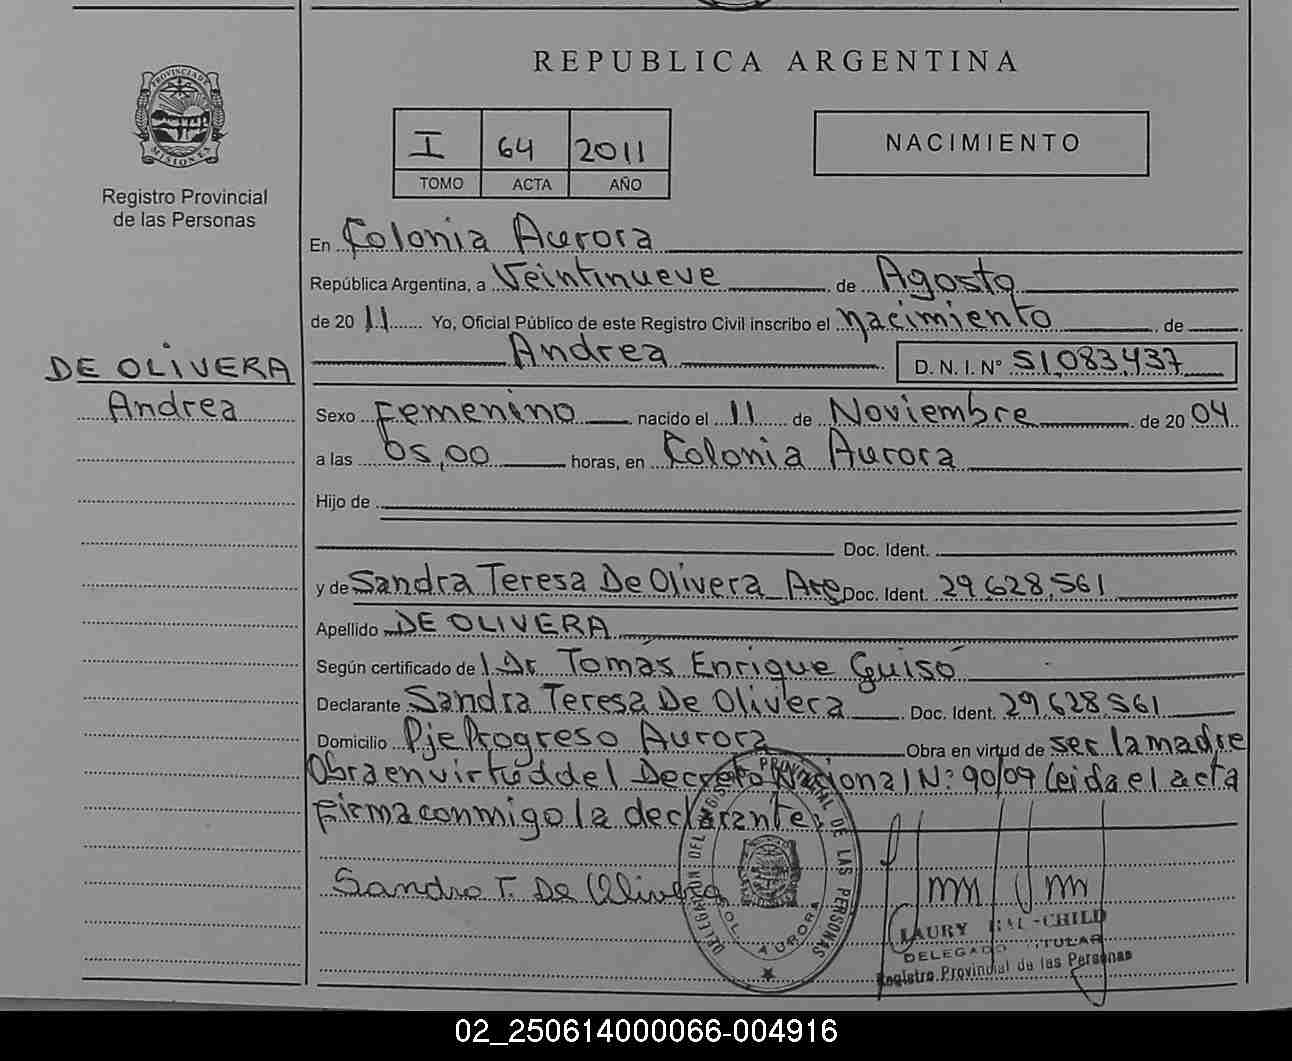 REPUBLICA ARGENTINA
PROVINCIA DE
MISIONES
Registro Provincial
de las Personas
I 64 2011
TOMO ACTA AÑO
NACIMIENTO
En Colonia Aurora
República Argentina, a Veintinueve de Agosto
de 2011 Yo, Oficial Público de este Registro Civil inscribo el nacimiento de
Andrea D. N. I. Nº 51,083,437
DE OLIVERA
Andrea
Sexo Femenino nacido el 11 de Noviembre de 2004
a las 05,00 horas, en Colonia Aurora
Hijo de
Doc. Ident.
y de Sandra Teresa De Olivera Arg Doc. Ident. 29628,561
Apellido DE OLIVERA
Según certificado de Dr Tomás Enrique Guisó
Declarante Sandra Teresa De Olivera Doc. Ident. 29.628.561
Domicilio Pje Progreso Aurora Obra en virtud de ser la madre
Obra en virtud del Decreto Nacional Nº: 90/09 Leida el acta
Firma conmigo la declarante
Sandra T. De Olivera
DELEGACION DEL REGISTRO PROVINCIAL DE LAS PERSONAS
COL. AURORA
LAURY -CHILD
DELEGADO TITULAR
Registro Provincial de las Personas
02_250614000066-004916